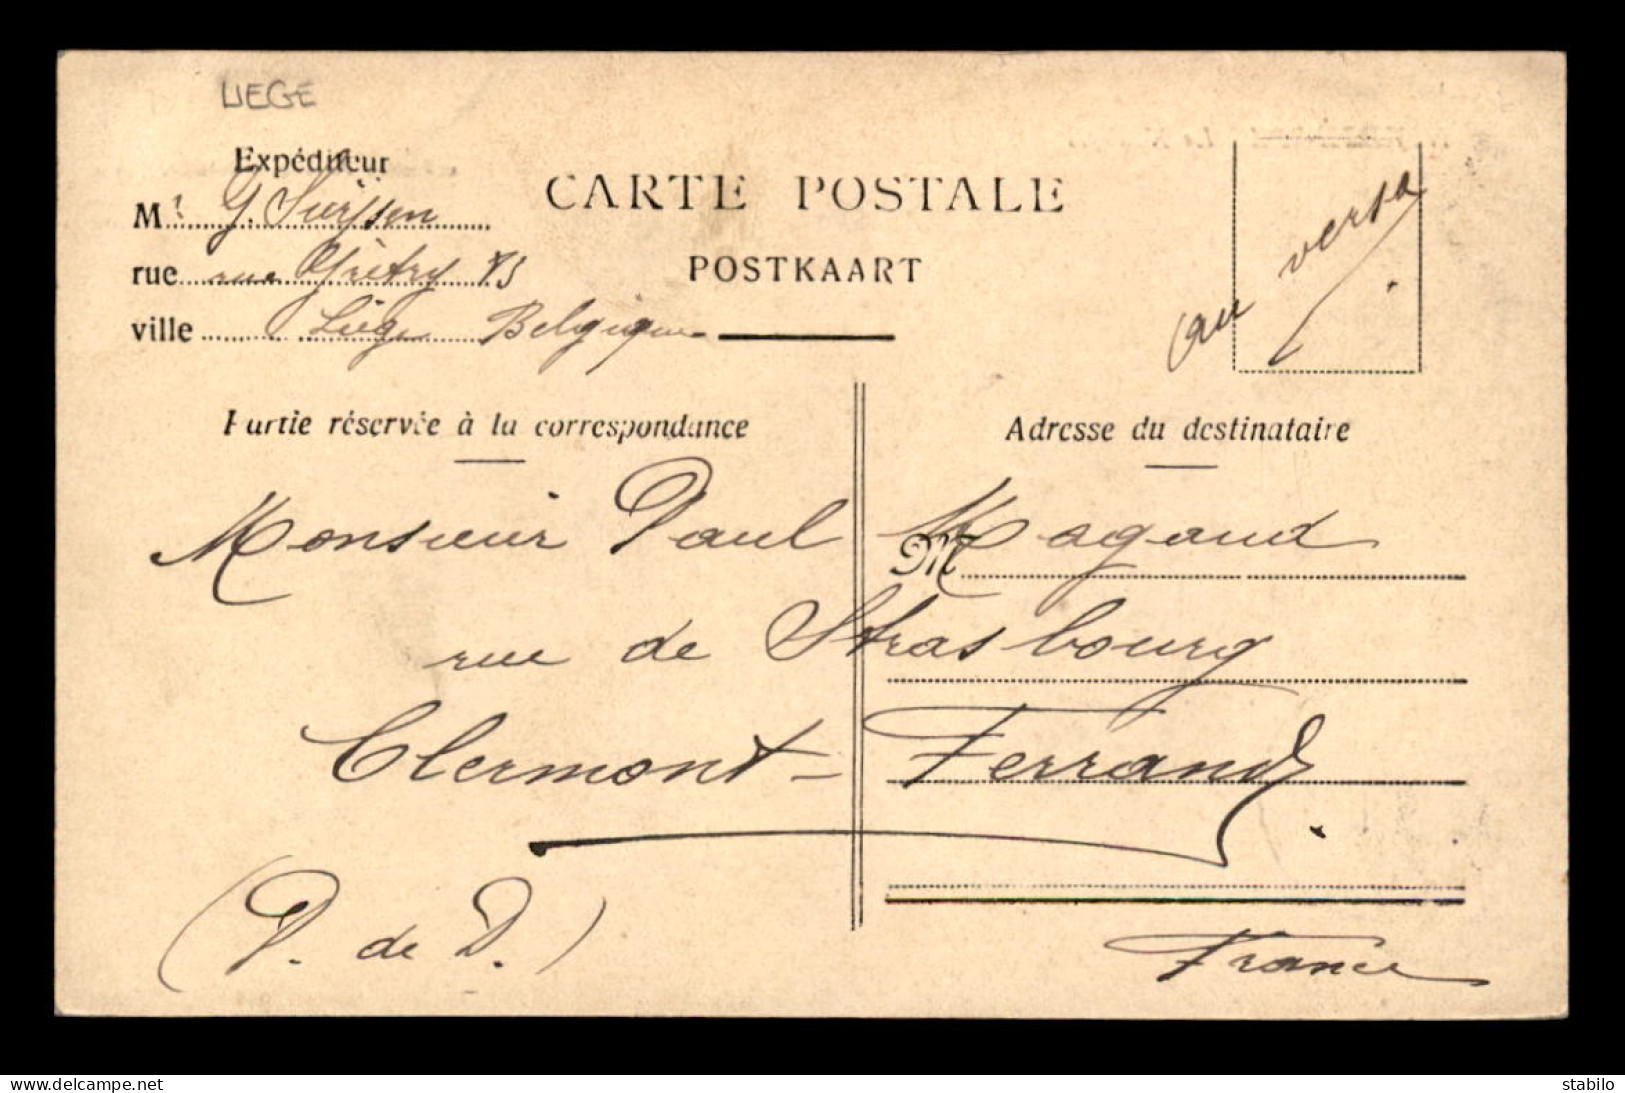 LIEGE
Expéditeur
M. G.
rue rue Grétry
ville Liège Belgique
CARTE POSTALE
POSTKAART
au verso
Partie réservée à la correspondance
Adresse du destinataire
Monsieur Paul M Magaud
rue de Strasbourg
Clermont-Ferrand.
(P. de D.)
France
www.delcampe.net
stabilo